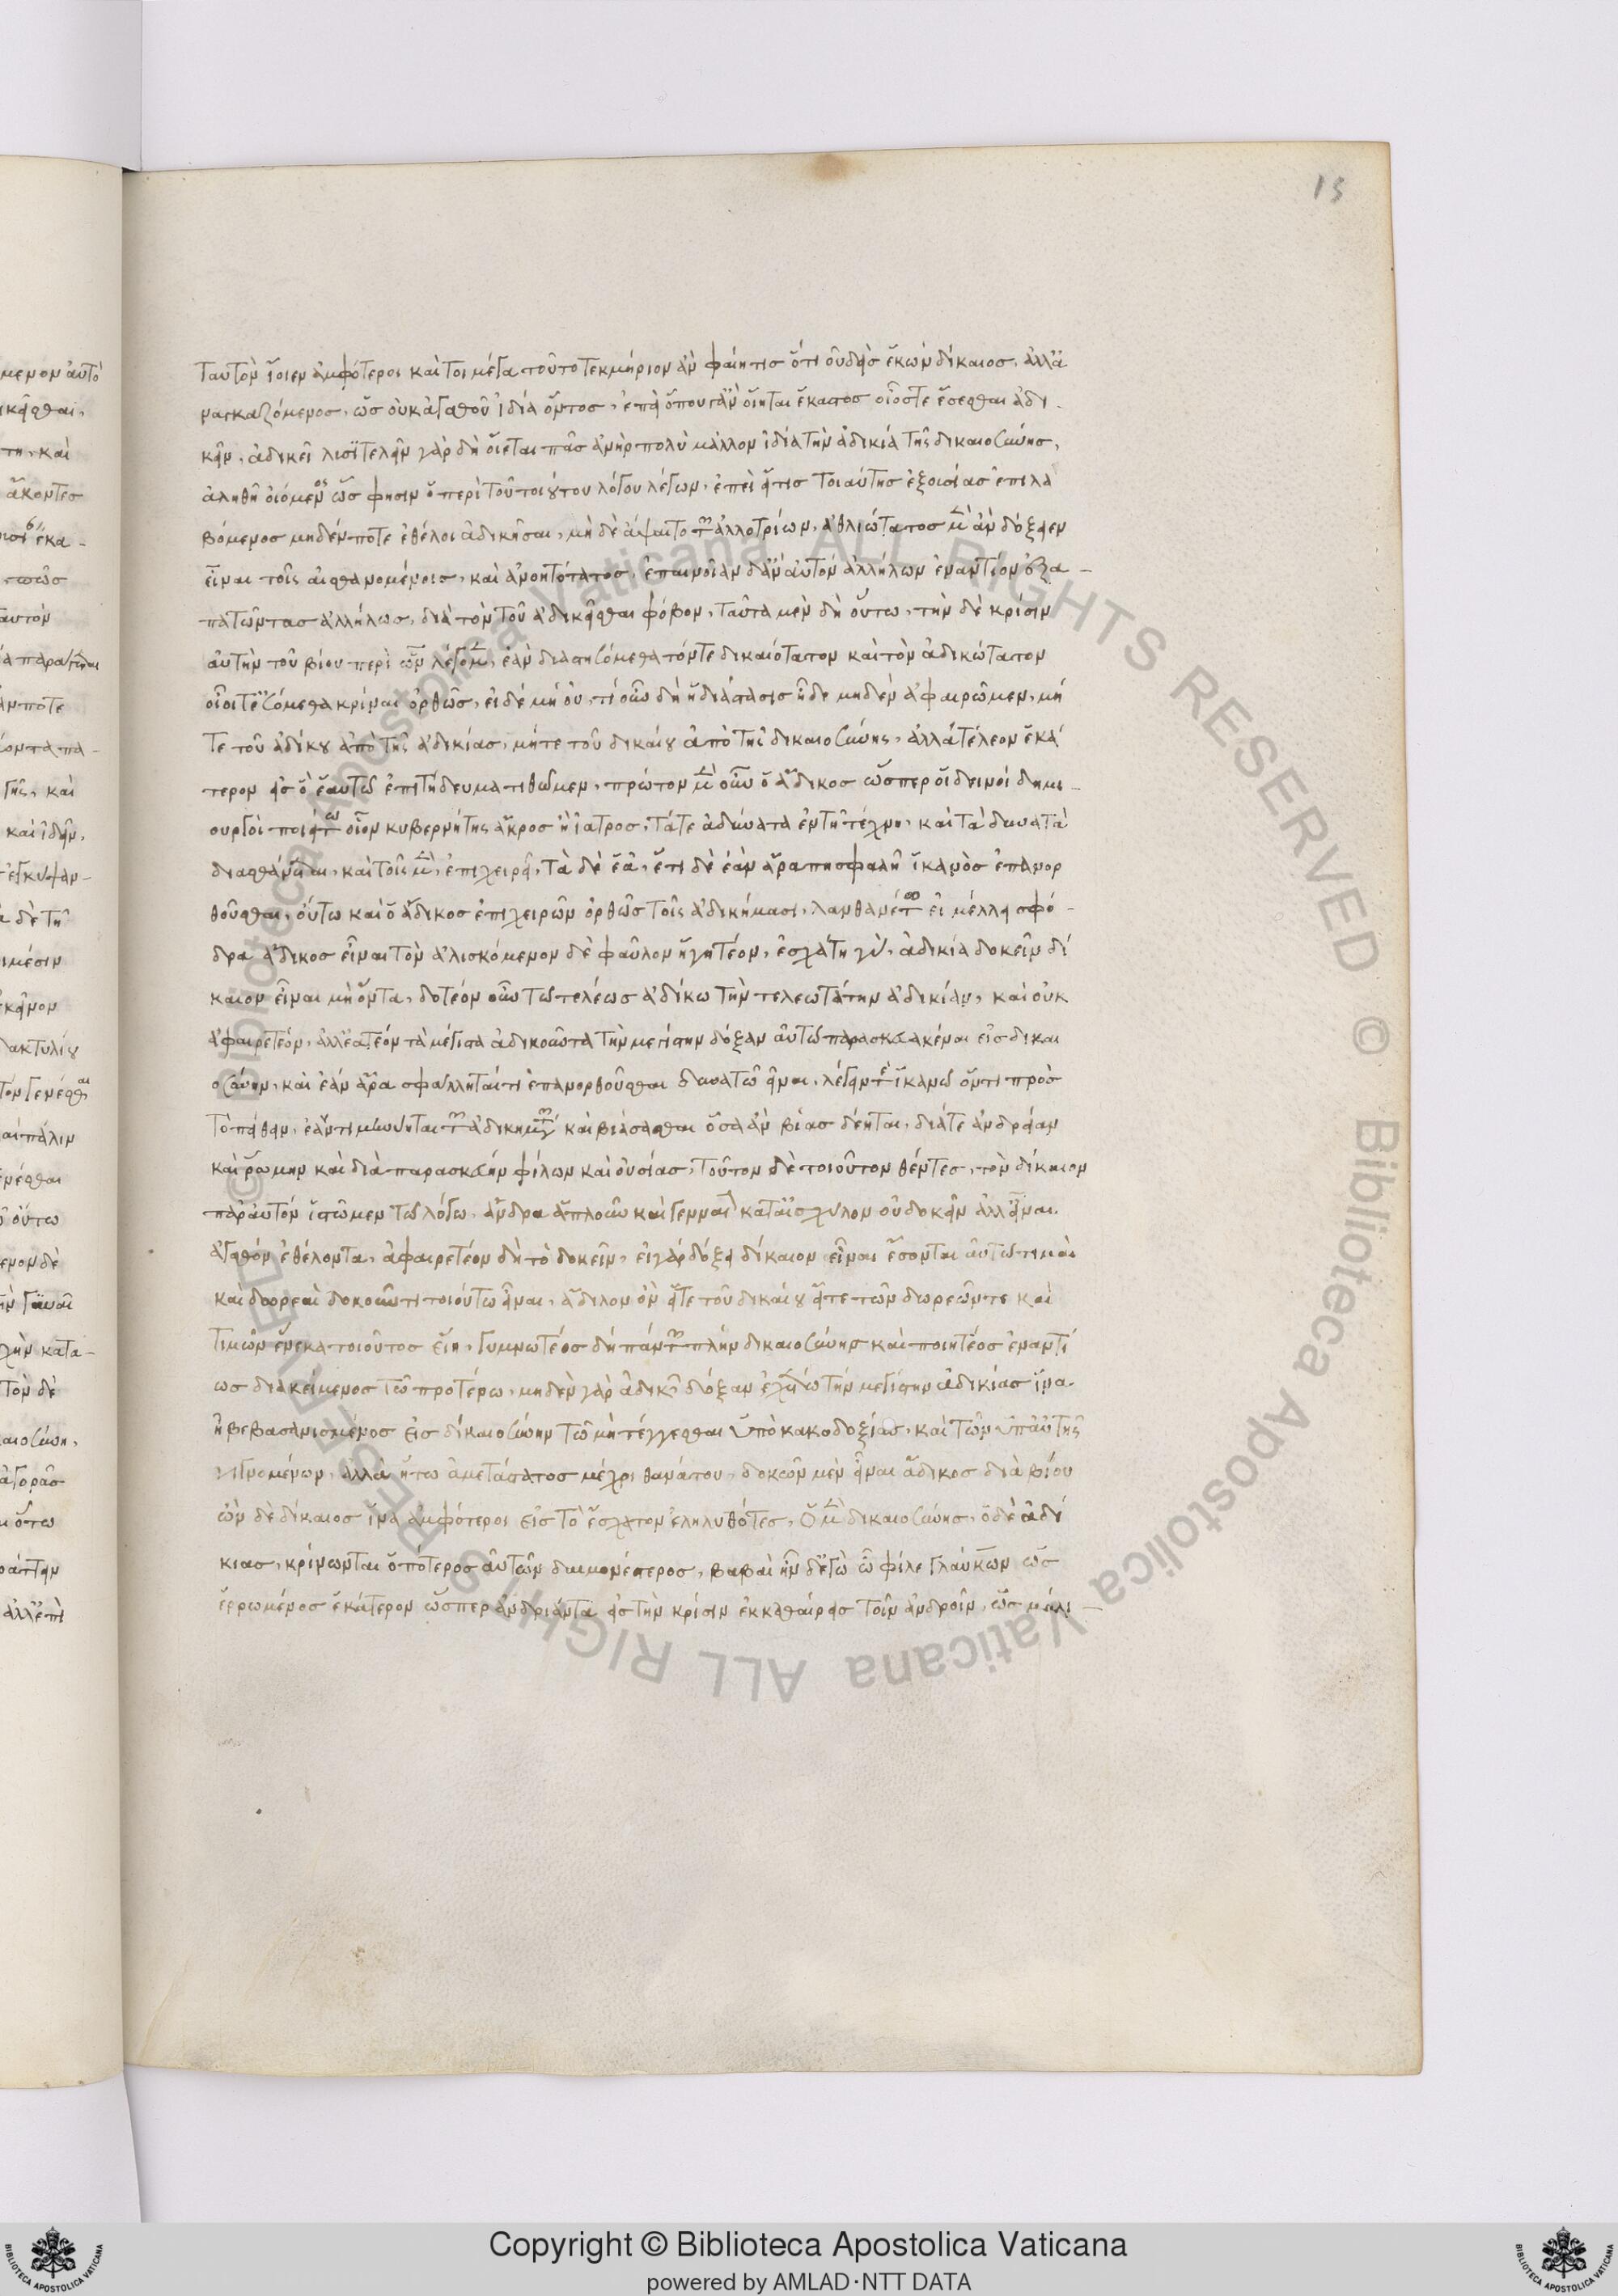 15
ταυτὸν ἴοιεν ἀμφότεροι καὶ τοι μέγα τοῦτο τεκμήριον ἂν φαίη τισ ὅτι οὐδεὶσ ἑκὼν δίκαιοσ, ἀλλ' ἀ
ναγκαζόμενοσ, ὡσ οὐκ ἀγαθοῦ ἰδία ὄντοσ, ἐπεὶ ὅπου γ' ἂν οἴηται ἕκαστοσ οἷόστε ἔσεσθαι ἀδι -
κεῖν, ἀδικεῖ λυσιτελεῖν γὰρ δὴ οἴεται πᾶσ ἀνὴρ πολὺ μᾶλλον ἰδία τὴν ἀδικία τῆσ δικαιοσύνησ,
ἀληθῆ οἰόμενοσ ὡσ φησιν ὁ περὶ τοῦ τοιούτου λόγου λέγων, ἐπεὶ εἴτισ τοιαύτησ ἐξουσίασ ἐπιλα
βόμενοσ μηδέν ποτε ἐθέλοι ἀδικῆσαι, μὴ δὲ ἅψαιτο τῶν ἀλλοτρίων, ἀθλιώτατοσ μὲν ἂν δόξειεν
εἶναι τοῖσ αἰσθανομένοισ, καὶ ἀνοητότατοσ, ἐπαινοῖαν δ' ἂν αὐτὸν ἀλλήλων ἐναντίον ἐξα -
πατῶντασ ἀλλήλωσ, διὰ τὸν τοῦ ἀδικεῖσθαι φόβον, ταῦτα μὲν δὴ οὕτω, τὴν δὲ κρισιν
αὐτὴν τοῦ βίου περὶ ὧν λέγομεν, ἐὰν διαστησόμεθα τόντε δικαιότατον καὶ τὸν ἀδικώτατον
οἷοί τ' ἐσόμεθα κρίναι ὀρθῶσ, εἰ δὲ μὴ οὐ, τίσ οὖν δὴ ἡ διάστασισ ἥδε μηδὲν ἀφαιρῶμεν, μή
τε τοῦ ἀδίκου ἀπὸ τῆσ ἀδικίασ, μήτε τοῦ δικαίου ἀπὸ τῆσ δικαιοσύνησ, ἀλλὰ τέλεον ἑκά
τερον εἰσ ὃ ἑαυτῶ ἐπιτήδευμα τιθῶμεν, πρῶτον μὲν οὖν ὁ ἄδικοσ ὥσπερ οἱ δεινοὶ δημι -
ουργοὶ ποιείτω οἷον κυβερνήτησ ἄκροσ ἢ ἰατροσ, τά τε ἀδύνατα ἐν τῆ τέχνη, καὶ τὰ δυνατὰ
διαισθάνεται, καὶ τοῖσ μὲν, ἐπιχειρεῖ, τὰ δὲ ἐᾶ, ἔτι δὲ ἐὰν ἄρα πη σφαλῆ ἱκανὸσ ἐπανορ
θοῦσθαι, οὕτω καὶ ὁ ἄδικοσ ἐπιχειρῶν ὀρθῶσ τοῖσ ἀδικήμασι, λανθανέτω εἰ μέλλει σφό -
δρα ἄδικοσ εἶναι τὸν ἁλισκόμενον δὲ φαῦλον ἡγητέον, ἐσχάτη γὰρ, ἀδικία δοκεῖν δί
καιον εἶναι μὴ ὄντα, δοτέον οὖν τῶ τελέωσ ἀδίκω τὴν τελεωτάτην ἀδικίαν, καὶ οὐκ
ἀφαιρετέον, ἀλλ' ἐατέον τὰ μέγιστα ἀδικοῦντα τὴν μεγίστην δόξαν αὑτῶ παρασκευακέναι εἰσ δικαι
οσύνην, καὶ ἐὰν ἄρα σφάλληταί τι ἐπανορθοῦσθαι δυνατῶ εἶναι, λέγειν τὲ ἱκανῶ ὄντι πρὸσ
τὸ πείθειν, ἐάν τι μηνύηται τῶν ἀδικημάτων καὶ βιάσασθαι ὅσα ἂν βίασ δέηται, διά τε ἀνδρείαν
καὶ ῥώμην καὶ διὰ παρασκευὴν φίλων καὶ οὐσίασ, τοῦτον δὲ τοιοῦτον θέντεσ, τὸν δίκαιον
παρ' αὐτόν ἱστῶμεν τῶ λόγω, ἄνδρα ἁπλοῦν καὶ γενναῖον κατ' αἰσχύλον οὐ δοκεῖν ἀλλ' εἶναι.
ἀγαθὸν ἐθέλοντα, ἀφαιρετέον δὴ τὸ δοκεῖν, εἰ γὰρ δόξει δίκαιον εἶναι ἔσονται αὐτῶ τιμαὶ
καὶ δωρεαὶ δοκοῦντι τοιούτω εἶναι, ἄδηλον οὖν εἴτε τοῦ δικαίου εἴτε τῶν δωρεῶν τε καὶ
τιμῶν ἕνεκα τοιοῦτοσ εἴη, γυμνωτέοσ δὴ πάντων πλὴν δικαιοσύνησ καὶ ποιητέοσ ἐναντί
ωσ διακείμενοσ τῶ προτέρω, μηδὲν γὰρ ἀδικῶν δόξαν ἐχέτω τὴν μεγίστην ἀδικίασ ἵνα
ἦ βεβασανισμένοσ εἰσ δικαιοσύνην τῶ μὴ τέγγεσθαι ὑπὸ κακοδοξίασ, καὶ τῶν ὑπ' αὐτῆσ
γιγνομένων, ἀλλὰ ἤτω ἀμετάστατοσ μέχρι θανάτου, δοκῶν μὲν εἶναι ἄδικοσ διὰ βίου
ὢν δὲ δίκαιοσ ἵνα ἀμφότεροι εἰσ τὸ ἔσχατον ἐληλυθότεσ, ὁ μὲν δικαιοσύνησ, ὁ δὲ ἀδι
κιασ, κρίνωνται ὁπότεροσ αὐτῶν δαιμονέστεροσ, βαβαὶ ἦν δ' ἐγὼ ὦ φίλε γλαύκων ὡσ
ἐρρωμένοσ ἑκάτερον ὥσπερ ἀνδριάντα εἰσ τὴν κρίσιν ἐκκαθαίρεισ τοῖν ἀνδροῖν, ὡσ μάλι -
Copyright © Biblioteca Apostolica Vaticana
powered by AMLAD·NTT DATA